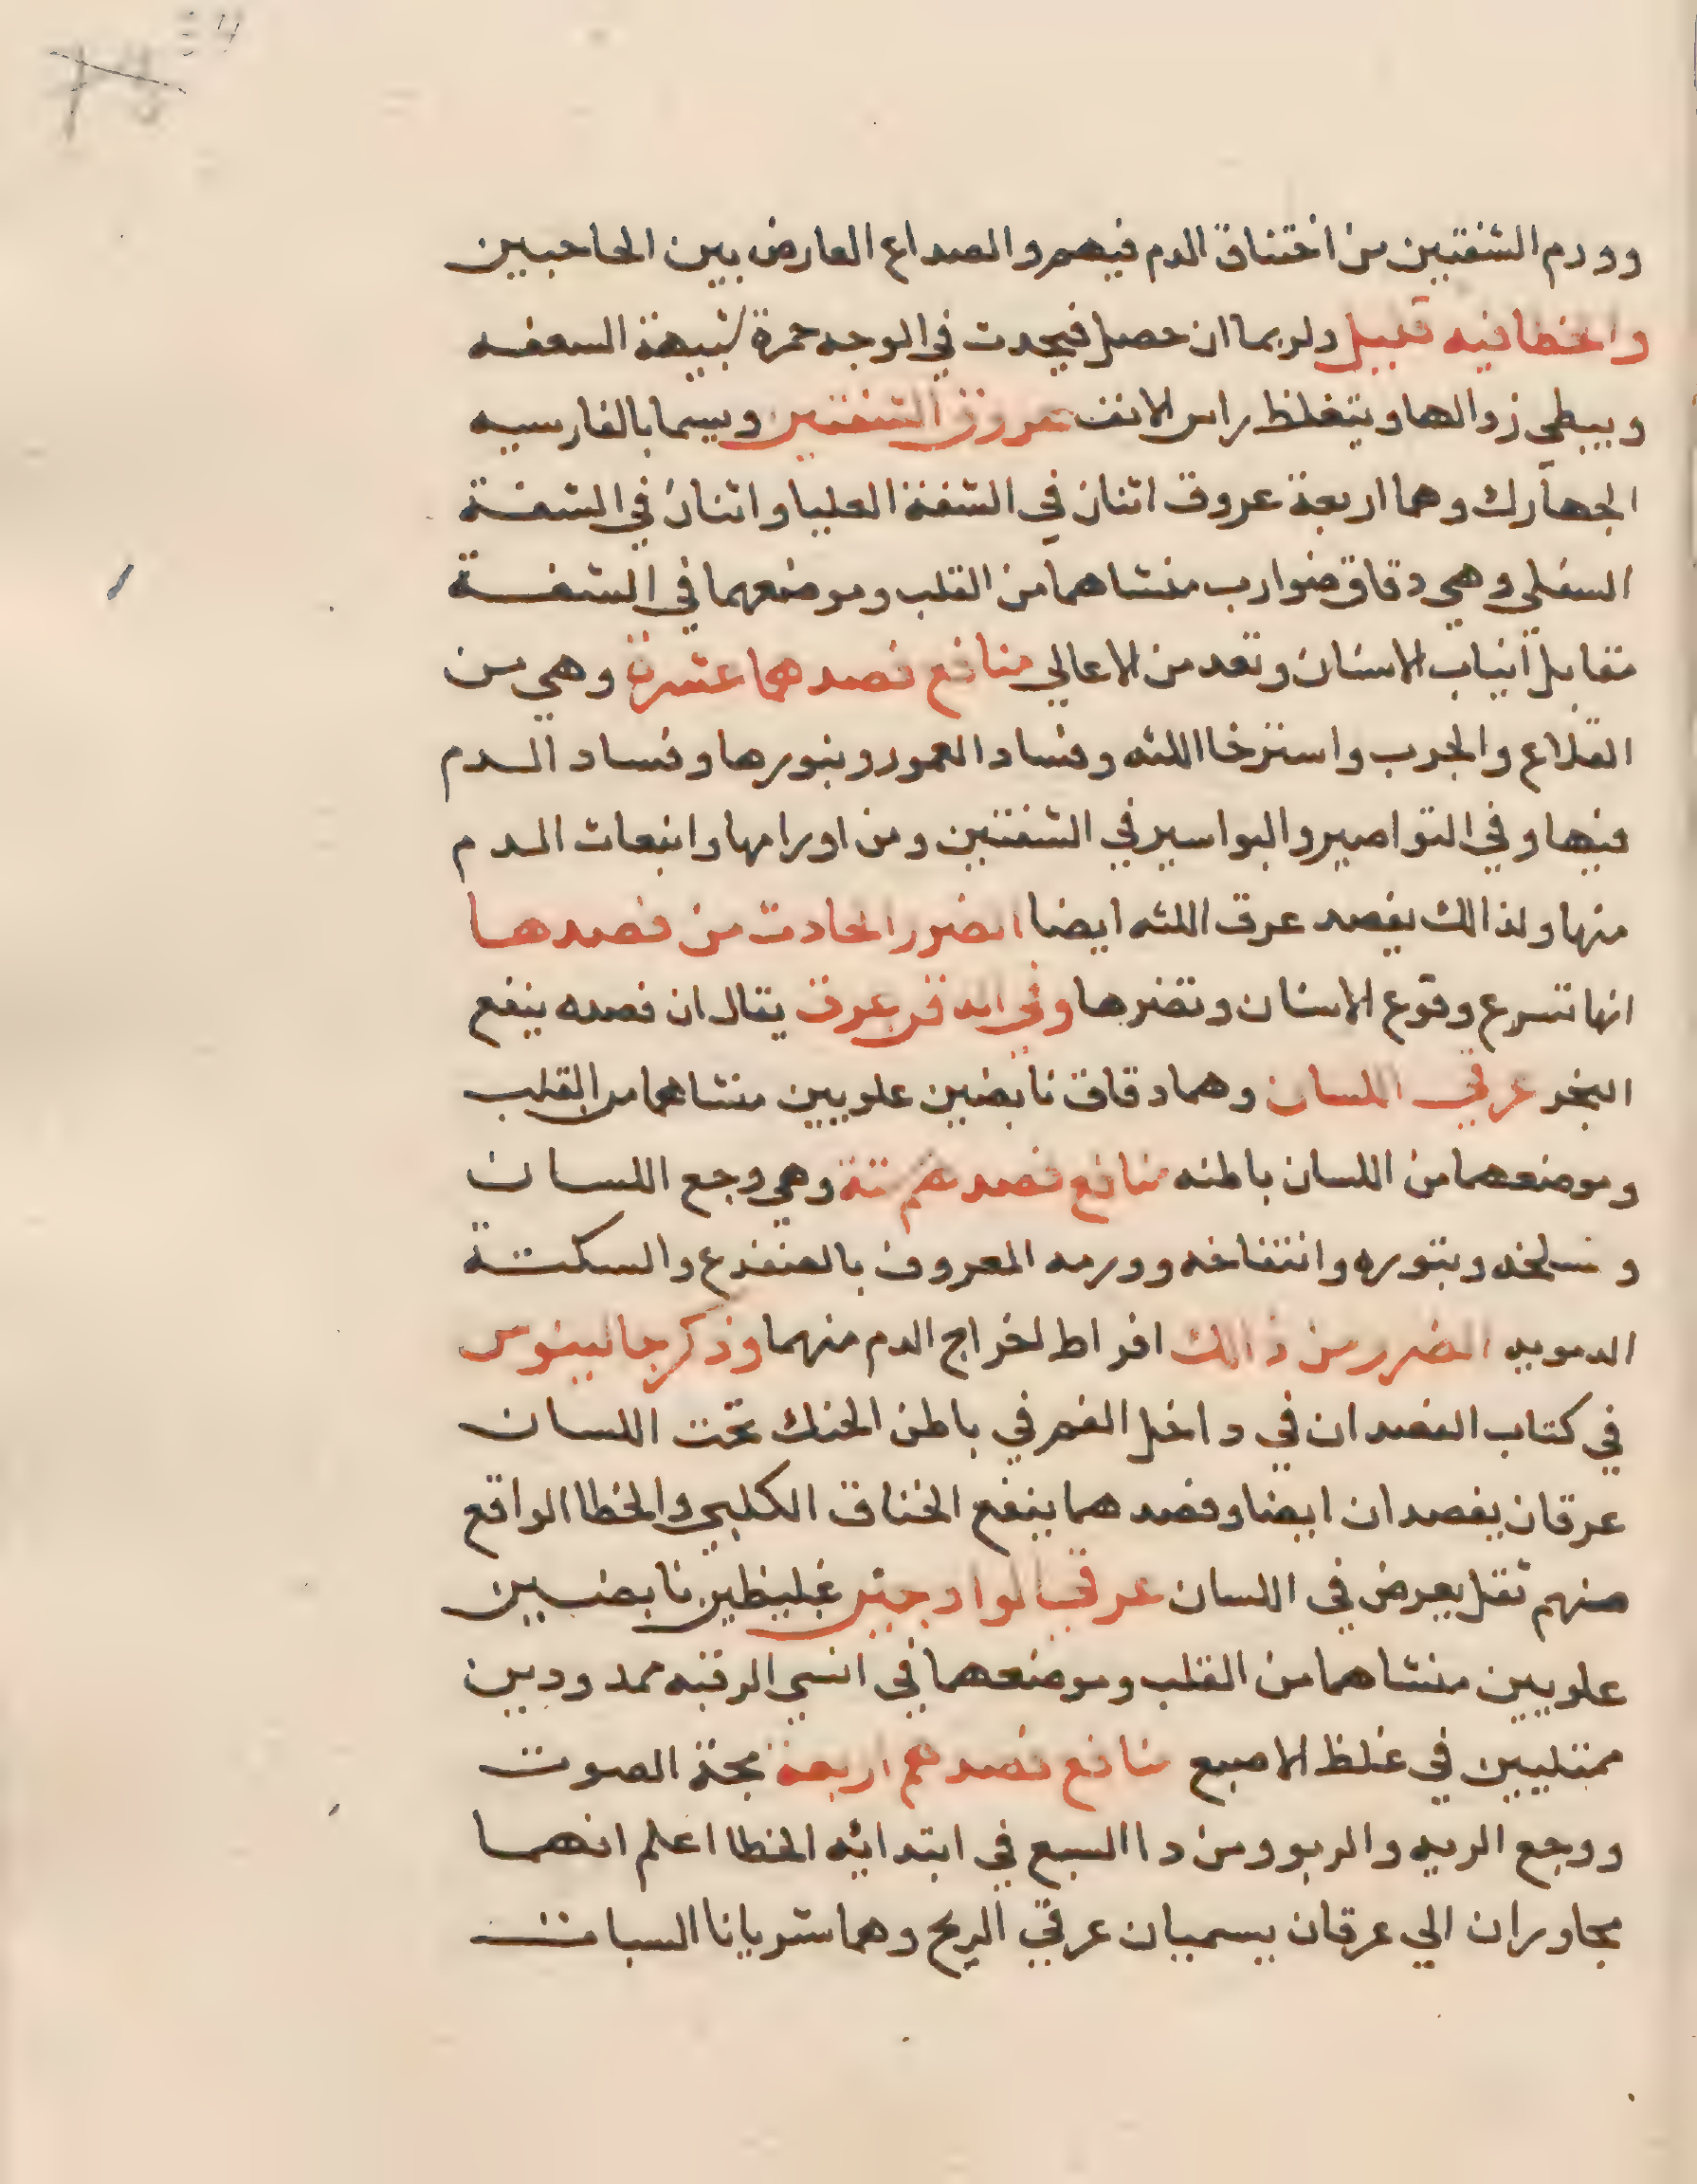 وورم الشفتين من اختناق الدم فيهم والصداع العارض بين الحاجبين
والخطا فيه قليل ولربما ان حصل فيحدث في الوجه حمرة شبيهة السعفه
ويبطي زوالها ويتغلظ راس الانف عروق الشفتين ويسما بالفارسيه
الجهارك وهما اربعة عروق اثنان في الشفة العليا واثنان في الشفة
السفلي وهي دقاق ضوارب منشاهما من القلب وموضعهما في الشفة
تقابل انياب الاسنان وتعد من الاعالي منافع فصدهما عشرة وهي من
القلاع والجرب واسترخا اللثه وفساد العمور وبثورها وفساد الدم
فيها وفي النواصير والبواسير في الشفتين ومن اورامها وانبعاث الدم
منها ولذالك يفصد عرق اللثه ايضا الضرر الحادث من فصدها
انها تسرع وقوع الاسنان وتضرها وفي الدقن عرق يقال ان فصده ينفع
البخر عرقي اللسان وهما دقاق نابضين علويين منشاهما من القلب
وموضعهما من اللسان باطنه منافع فصدهم ستة وهي وجع اللسان
وتسلخه وبثوره وانتفاخه وورمه المعروف بالضفدع والسكتة
الدمويه الضرر من ذالك افراط لخراج الدم منهما وذكر جالينوس
في كتاب الفصد ان في داخل الفم في باطن الحنك تحت اللسان
عرقان يفصدان ايضا وفصدهما ينفع الخناق الكلبي والخطا الواقع
منهم ثقل يعرض في اللسان عرقي الوادجين غليظين نابضين
علويين منشاهما من القلب وموضعهما في انسي الرقبه ممدودين
ممتليين في غلظ الاصبع منافع فصدهم اربعة بحة الصوت
ووجع الريه والربو ومن دا السبع في ابتدائه الخطا اعلم انهما
مجاوران الي عرقان يسميان عرقي الريح وهما شريانا السبات